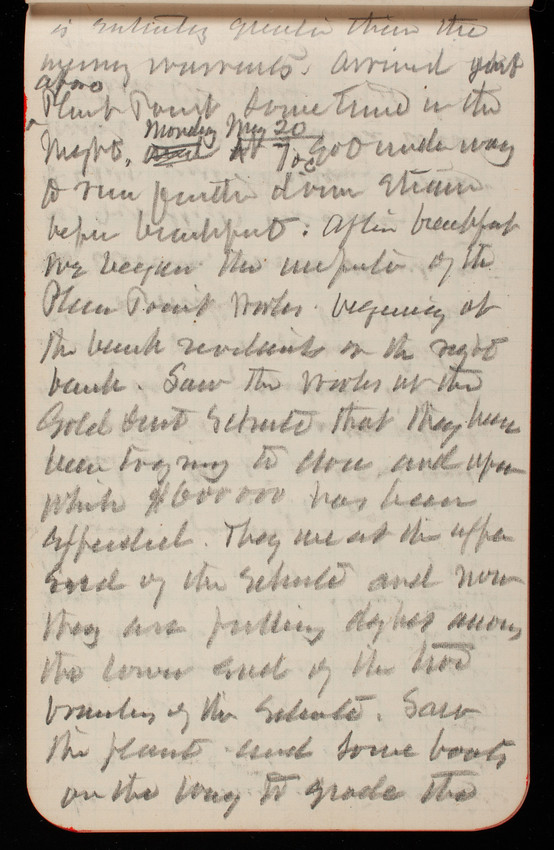 is entirely greater than the
money warrants. Arrived just
above
Plum Point some time in the
night. Monday May 20
At 7 oc Got under way
to run further down stream
before breakfast. After breakfast
we began the inspection of the
Plum Point works beginning at
the bank revetment on the right
bank. Saw the works at the
Gold Dust Schute that they have
been trying to close and upon
which $600000 has been
expended. They are at the upper
end of the Schute and now
they are putting dykes across
the lower end of the two
branches of the Schute. Saw
the plant and some boats
on the way to grade the